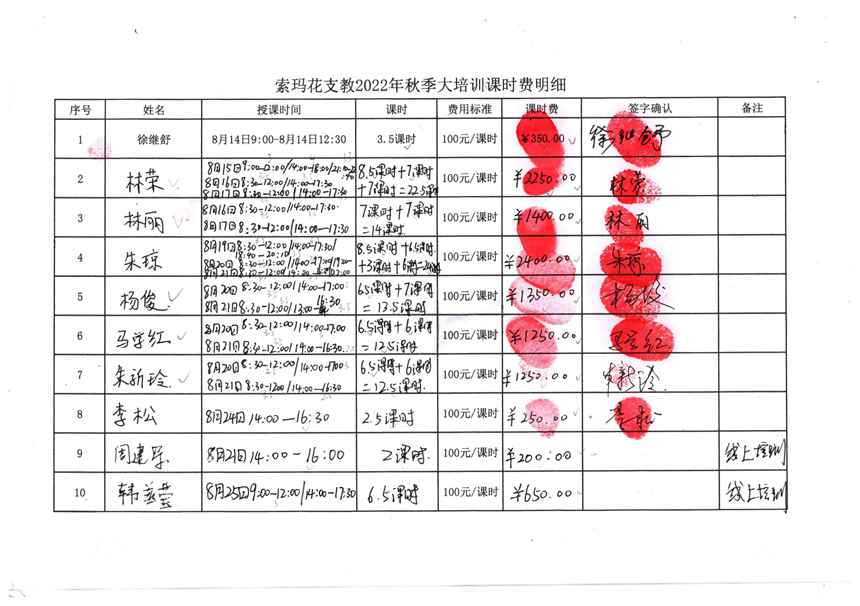 索玛花支教2022年秋季大培训课时费明细
序号 姓名 授课时间 课时 费用标准 课时费 签字确认 备注
1 徐继舒 8月14日9:00-8月14日12:30 3.5课时 100元/课时 ￥350.00 徐继舒
2 林荣 8月15日8:00-12:00/14:00-18:00/
8月16日8:30-12:00/14:00-17:30
8月17日8:30-12:00/14:00-17:30 8.5课时+7课时
+7课时=22.5课时 100元/课时 ￥2250.00 林荣
3 林丽 8月16日8:30-12:00/14:00-17:30
8月17日8:30-12:00/14:00-17:30 7课时+7课时
=14课时 100元/课时 ￥1400.00 林丽
4 朱琼 8月19日8:30-12:00/14:00-17:30/
18:40-20:10
8月20日8:30-12:00/14:00-17:00/19:00-
8月21日8:30-12:00/ 8.5课时+6.5课时
+3课时+6课时=24课时 100元/课时 ￥2400.00 朱琼
5 杨俊 8月20日8:30-12:00/14:00-17:00
8月21日8:30-12:00/13:00-16:30 6.5课时+7课时
=13.5课时 100元/课时 ￥1350.00 杨俊
6 8月20日8:30-12:00/14:00-17:00
8月21日8:30-12:00/14:00-16:30 6.5课时+6课时
=12.5课时 100元/课时 ￥1250.00
7 朱新玲 8月20日8:30-12:00/14:00-17:00
8月21日8:30-12:00/14:00-16:30 6.5课时+6课时
=12.5课时 100元/课时 ￥1250.00 朱新玲
8 李松 8月24日14:00-16:30 2.5课时 100元/课时 ￥250.00 李松
9 周建乐 8月21日14:00-16:00 2课时 100元/课时 ￥200:00 线上培训
10 韩益莹 8月25日9:00-12:00/14:00-17:30 6.5课时 100元/课时 ￥650.00 线上培训